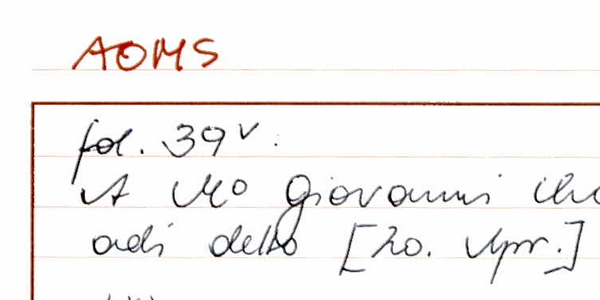 AOMS
fol. 39v.
A Mo Giovanni
adi detto [20. Apr.]